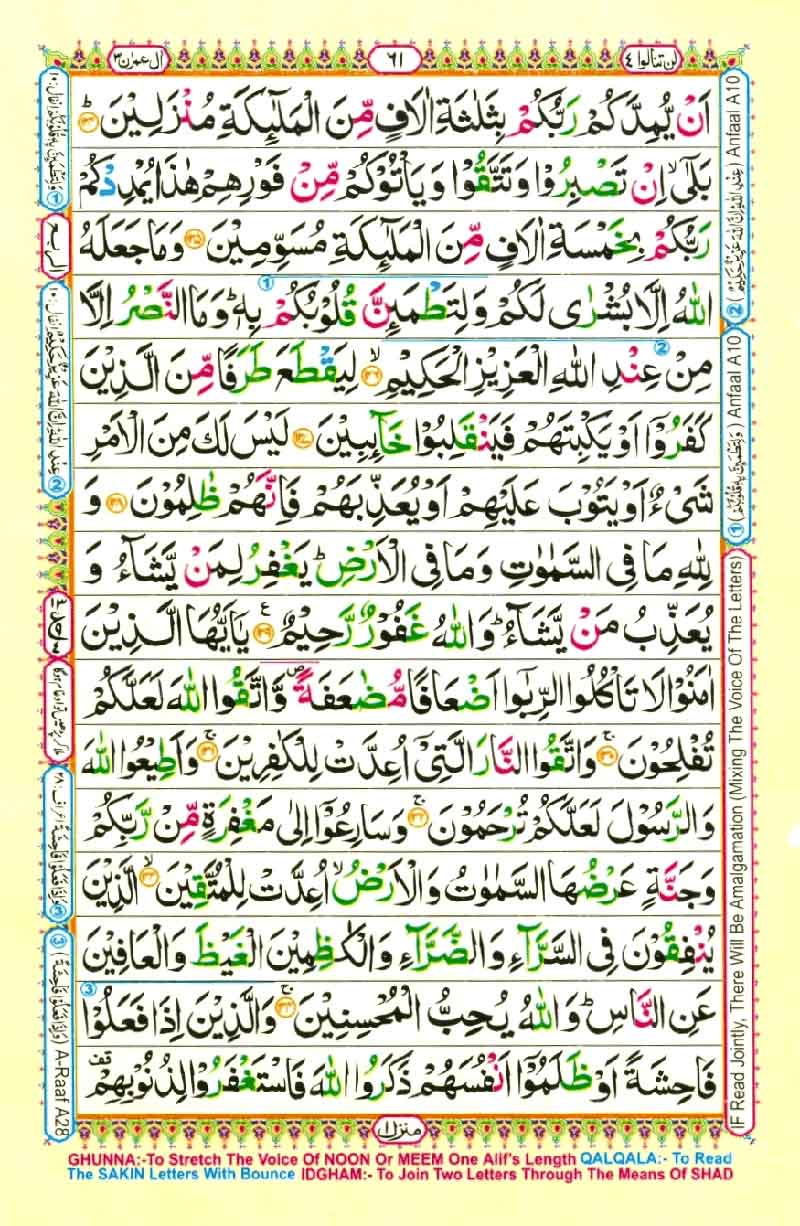 لن تنالوا ٤
٦١
اٰل عمرٰن ٣
اَنْ يُّمِدَّكُمْ رَبُّكُمْ بِثَلٰثَةِ اٰلَافٍ مِّنَ الْمَلٰٓئِكَةِ مُنْزَلِيْنَ ؕ﴿۱۲۴﴾
بَلٰۤى ۙ اِنْ تَصْبِرُوْا وَتَتَّقُوْا وَيَاْتُوْكُمْ مِّنْ فَوْرِهِمْ هٰذَا يُمْدِدْكُمْ
رَبُّكُمْ بِخَمْسَةِ اٰلَافٍ مِّنَ الْمَلٰٓئِكَةِ مُسَوِّمِيْنَ ﴿۱۲۵﴾ وَمَا جَعَلَهُ
اللّٰهُ اِلَّا بُشْرٰى لَكُمْ وَلِتَطْمَئِنَّ قُلُوْبُكُمْ بِهٖ ؕ وَمَا النَّصْرُ اِلَّا
مِنْ عِنْدِ اللّٰهِ الْعَزِيْزِ الْحَكِيْمِ ۙ﴿۱۲۶﴾ لِيَقْطَعَ طَرَفًا مِّنَ الَّذِيْنَ
كَفَرُوْۤا اَوْ يَكْبِتَهُمْ فَيَنْقَلِبُوْا خَآئِبِيْنَ ﴿۱۲۷﴾ لَيْسَ لَكَ مِنَ الْاَمْرِ
شَىْءٌ اَوْ يَتُوْبَ عَلَيْهِمْ اَوْ يُعَذِّبَهُمْ فَاِنَّهُمْ ظٰلِمُوْنَ ﴿۱۲۸﴾ وَ
لِلّٰهِ مَا فِى السَّمٰوٰتِ وَمَا فِى الْاَرْضِ ؕ يَغْفِرُ لِمَنْ يَّشَآءُ وَ
يُعَذِّبُ مَنْ يَّشَآءُ ؕ وَاللّٰهُ غَفُوْرٌ رَّحِيْمٌ ﴿۱۲۹﴾ يٰۤاَيُّهَا الَّذِيْنَ
اٰمَنُوْا لَا تَاْكُلُوا الرِّبٰۤوا اَضْعَافًا مُّضٰعَفَةً ۪ وَّاتَّقُوا اللّٰهَ لَعَلَّكُمْ
تُفْلِحُوْنَ ۚ﴿۱۳۰﴾ وَاتَّقُوا النَّارَ الَّتِىْۤ اُعِدَّتْ لِلْكٰفِرِيْنَ ۚ﴿۱۳۱﴾ وَاَطِيْعُوا اللّٰهَ
وَالرَّسُوْلَ لَعَلَّكُمْ تُرْحَمُوْنَ ۚ﴿۱۳۲﴾ وَسَارِعُوْۤا اِلٰى مَغْفِرَةٍ مِّنْ رَّبِّكُمْ
وَجَنَّةٍ عَرْضُهَا السَّمٰوٰتُ وَالْاَرْضُ ۙ اُعِدَّتْ لِلْمُتَّقِيْنَ ۙ﴿۱۳۳﴾ الَّذِيْنَ
يُنْفِقُوْنَ فِى السَّرَّآءِ وَالضَّرَّآءِ وَالْكٰظِمِيْنَ الْغَيْظَ وَالْعَافِيْنَ
عَنِ النَّاسِ ؕ وَاللّٰهُ يُحِبُّ الْمُحْسِنِيْنَ ۚ﴿۱۳۴﴾ وَالَّذِيْنَ اِذَا فَعَلُوْا
فَاحِشَةً اَوْ ظَلَمُوْۤا اَنْفُسَهُمْ ذَكَرُوا اللّٰهَ فَاسْتَغْفَرُوْا لِذُنُوْبِهِمْ
منزل ١
② (عِنْدِ اللّٰهِ اِنَّ اللّٰهَ عَزِيْزٌ حَكِيْمٌ) Anfaal A10
① (وَلِتَطْمَئِنَّ بِهٖ قُلُوْبُكُمْ) Anfaal A10
IF Read Jointly, There Will Be Amalgamation (Mixing The Voice Of The Letters)
③ (وَاِذَا فَعَلُوْا فَاحِشَةً) A-Raaf A28
GHUNNA:-To Stretch The Voice Of NOON Or MEEM One Alif's Length QALQALA:- To Read
The SAKIN Letters With Bounce IDGHAM:- To Join Two Letters Through The Means Of SHAD